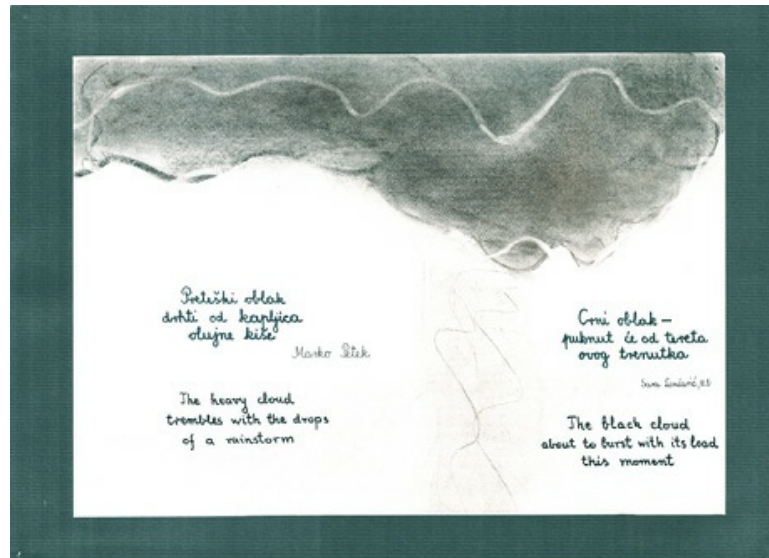 Preteški oblak
drhti od kapljica
olujne kiše
Marko
The heavy cloud
trembles with the drops
of a rainstorm
Crni oblak –
puknut će od tereta
ovog trenutka
The black cloud
about to burst with its load
this moment